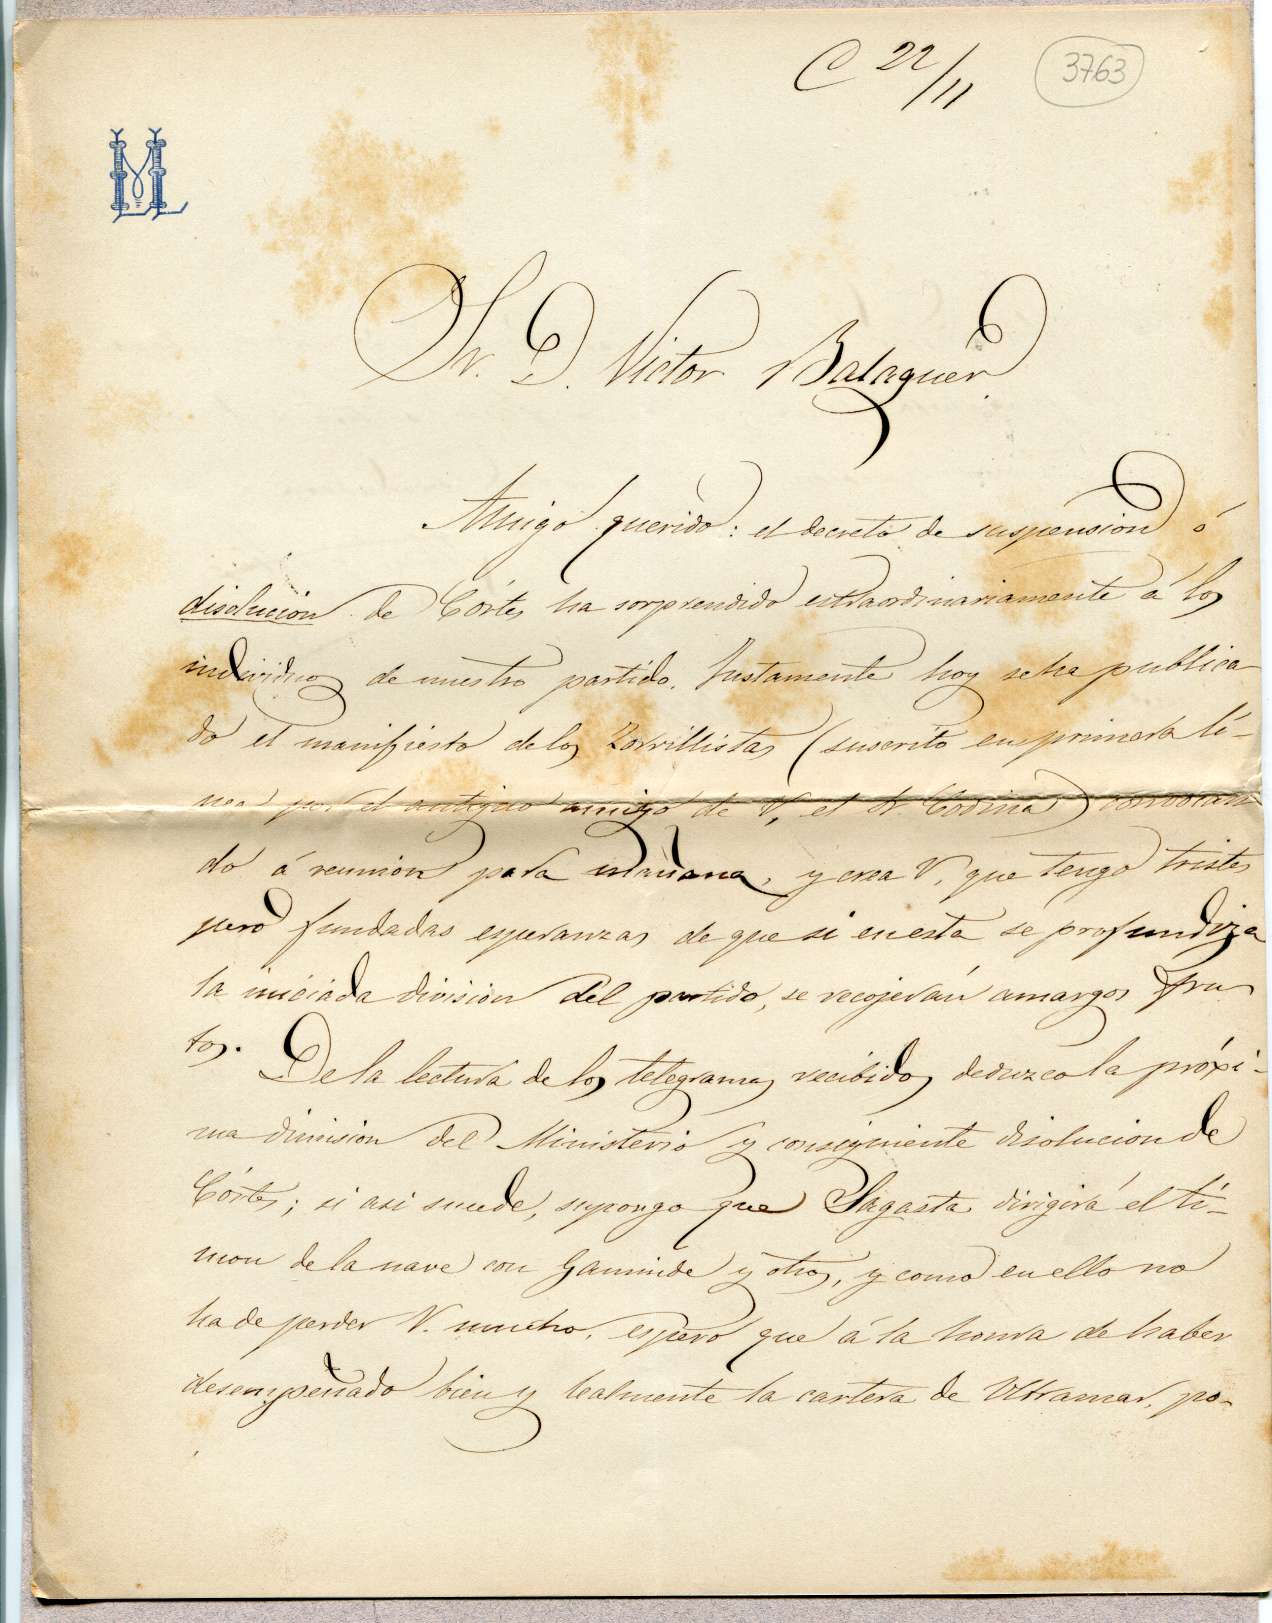 C 22/11
3763
ML
Sr. D. Victor Balaguer.
Amigo querido: el decreto de suspension ó
disolución de Córtes ha sorprendido extraordinariamente á los
individuos de nuestro partido. Justamente hoy se ha publica-
do el manifiesto de los Zorrillistas (suscrito en primera lí-
nea por el antiguo amigo de V, el Sr. Codina) convocan
do á reunion para mañana, y crea V. que tengo tristes
pero fundadas esperanzas de que si en esta se profundiza
la iniciada division del partido, se recojerán amargos fru
tos.
De la lectura de los telegramas recibidos deduzco la próxi-
ma dimision del Ministerio y consiguiente disolucion de
Córtes; si asi sucede, supongo que Sagasta dirigirá el ti-
mon de la nave con Gaminde y otros, y como en ello no
ha de perder V. mucho, espero que á la honra de haber
desempeñado bien y lealmente la cartera de Ultramar, po-